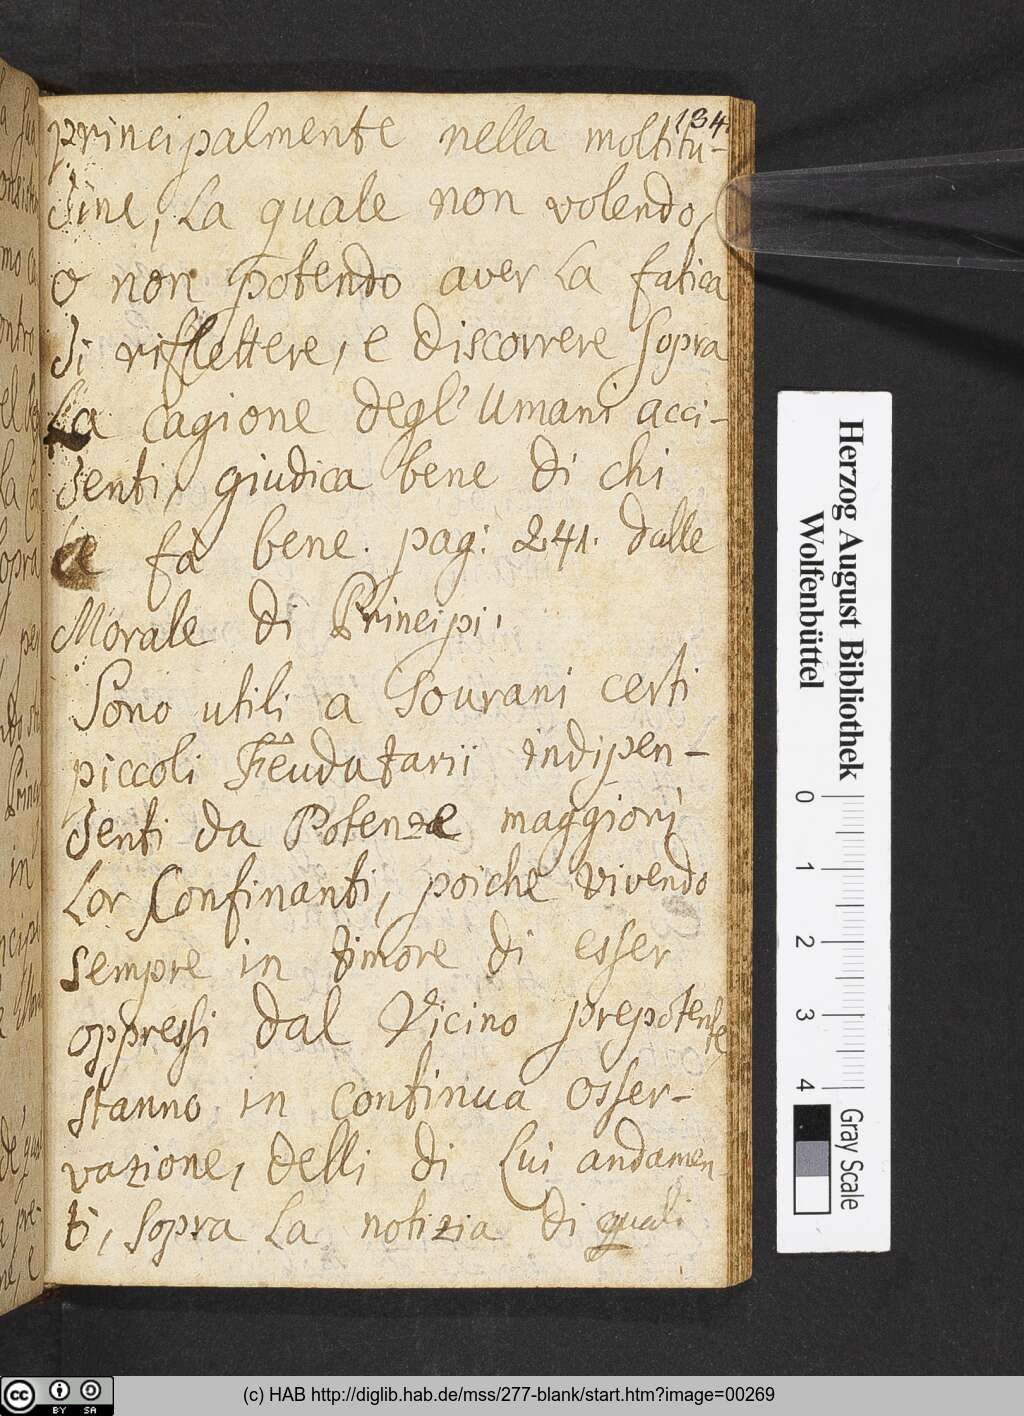 134.
principalmente nella moltitu-
dine, La quale non volendo,
o non potendo aver La fatica
di riflettere, e discorrere sopra
La cagione degl' Umani acci-
denti, giudica bene di chi
la fà bene. pag: 241. dalle
Morale di Principi.
Sono utili a Sourani certi
piccoli Feudatarii indipen-
denti da Potenze maggiori
Lor Confinanti, poiche vivendo
sempre in timore di esser
oppressi dal Vicino prepotente
stanno in continua osser-
vazione, delli di Lui andamen-
ti, sopra La notizia di quali
Herzog August Bibliothek
Wolfenbüttel
0 1 2 3 4
Gray Scale
(c) HAB http://diglib.hab.de/mss/277-blank/start.htm?image=00269
cc BY SA